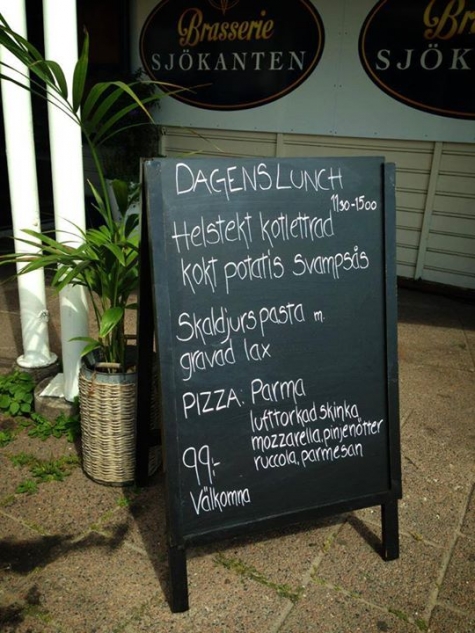 Brasserie
SJÖKANTEN
Br
SJÖKA
DAGENS LUNCH
1130-1500
Helstekt kotlettrad
kokt potatis svampsås
Skaldjurspasta m.
gravad lax
PIZZA: Parma
lufttorkad skinka
mozzarella, pinjenötter
ruccola, parmesan
99:-
Välkomna